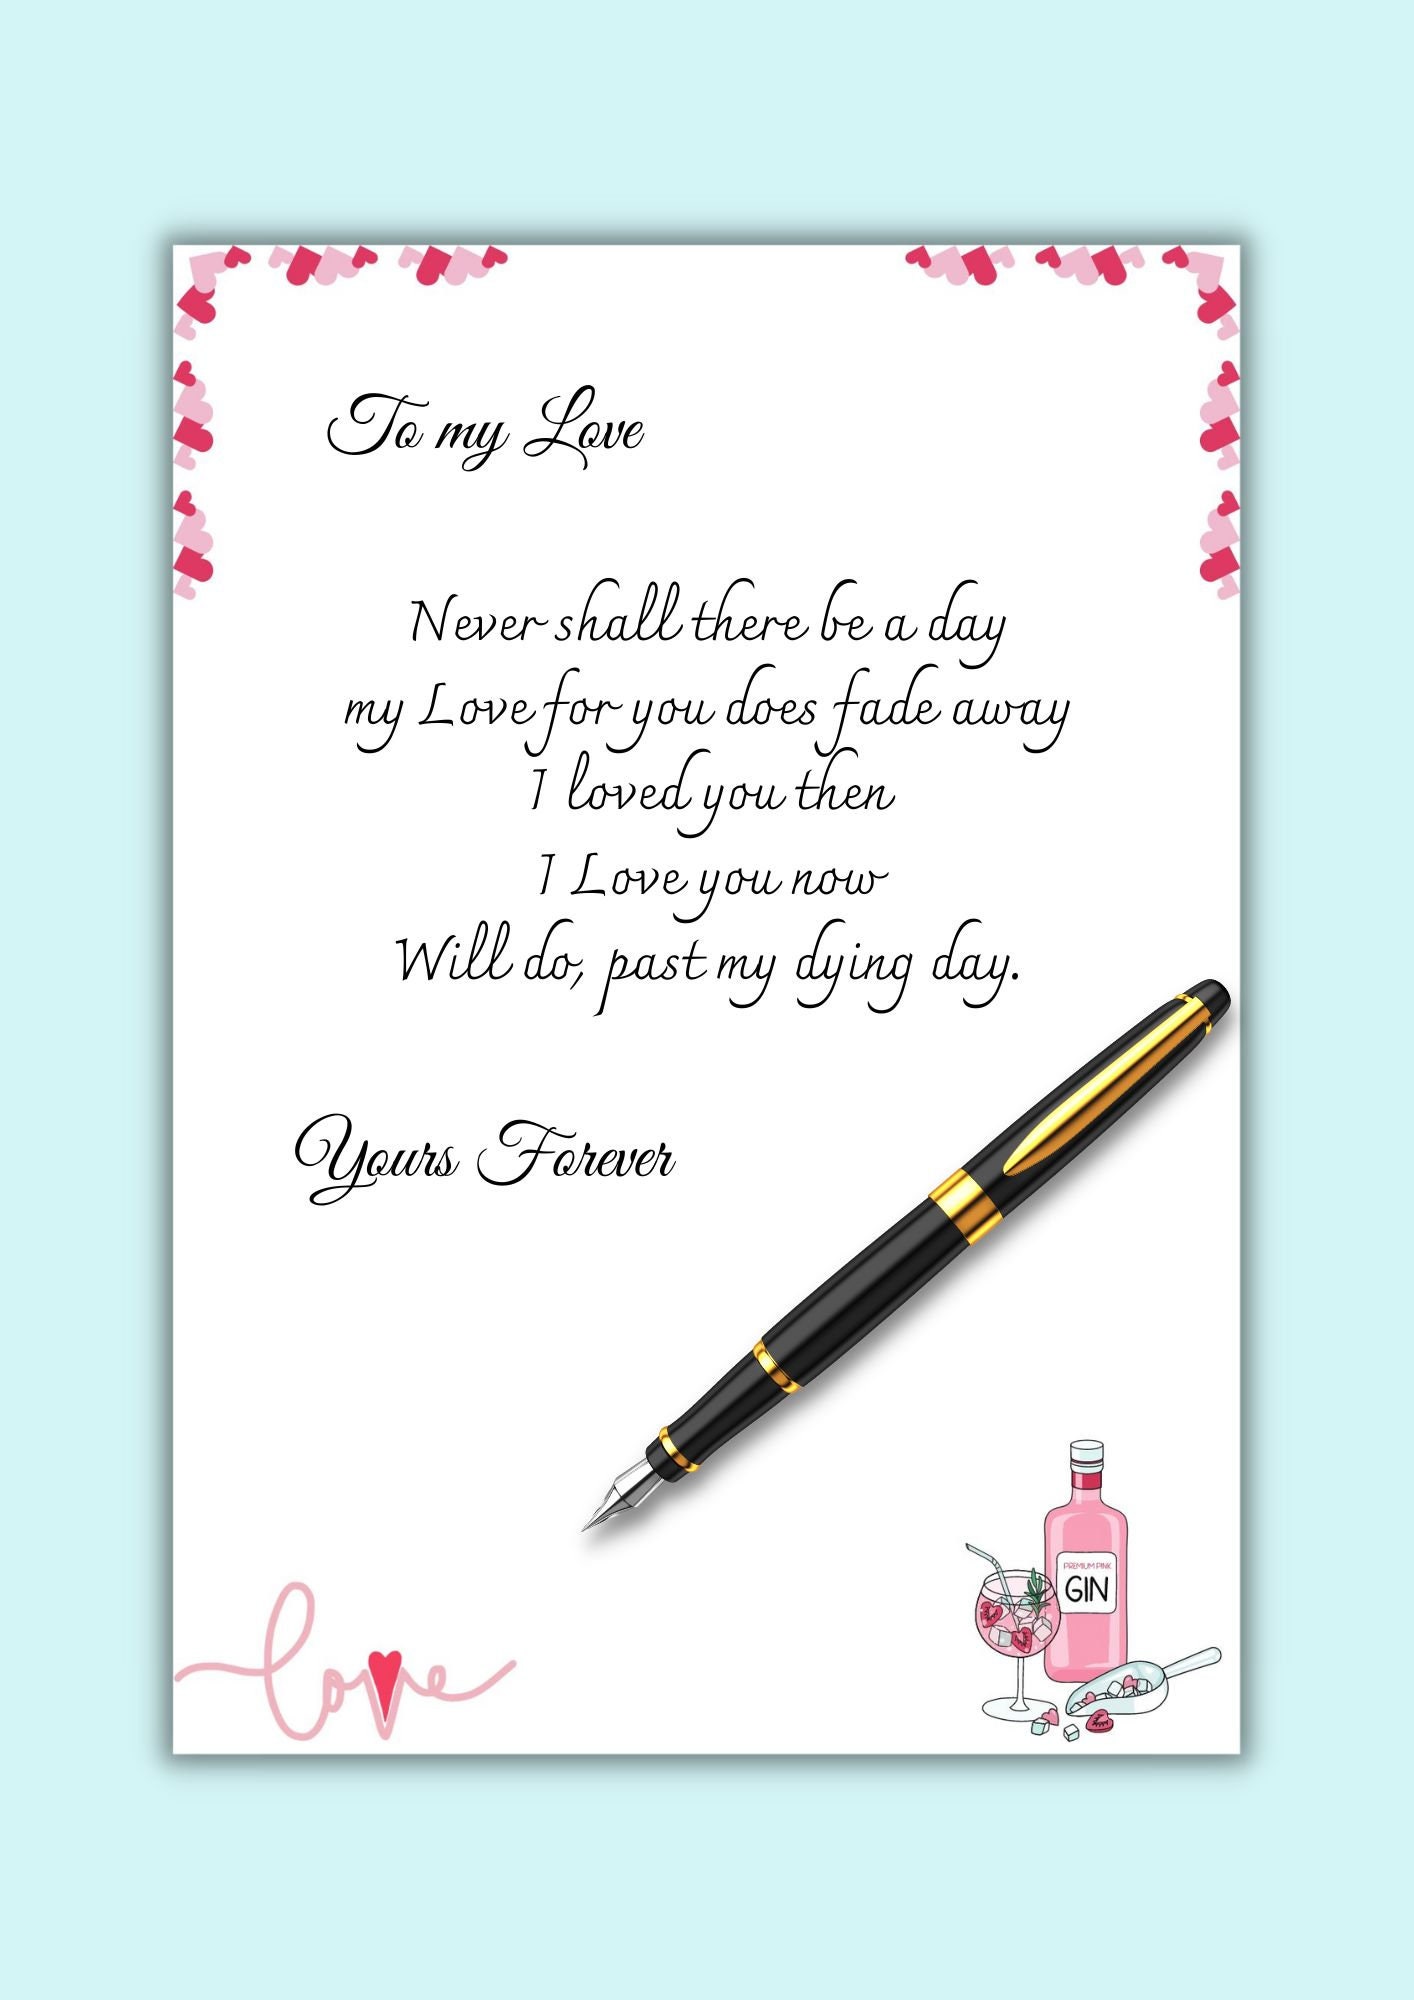 To my Love
Never shall there be a day
my Love for you does fade away
I loved you then
I Love you now
Will do, past my dying day.
Yours Forever
PREMIUM PINK
GIN
love